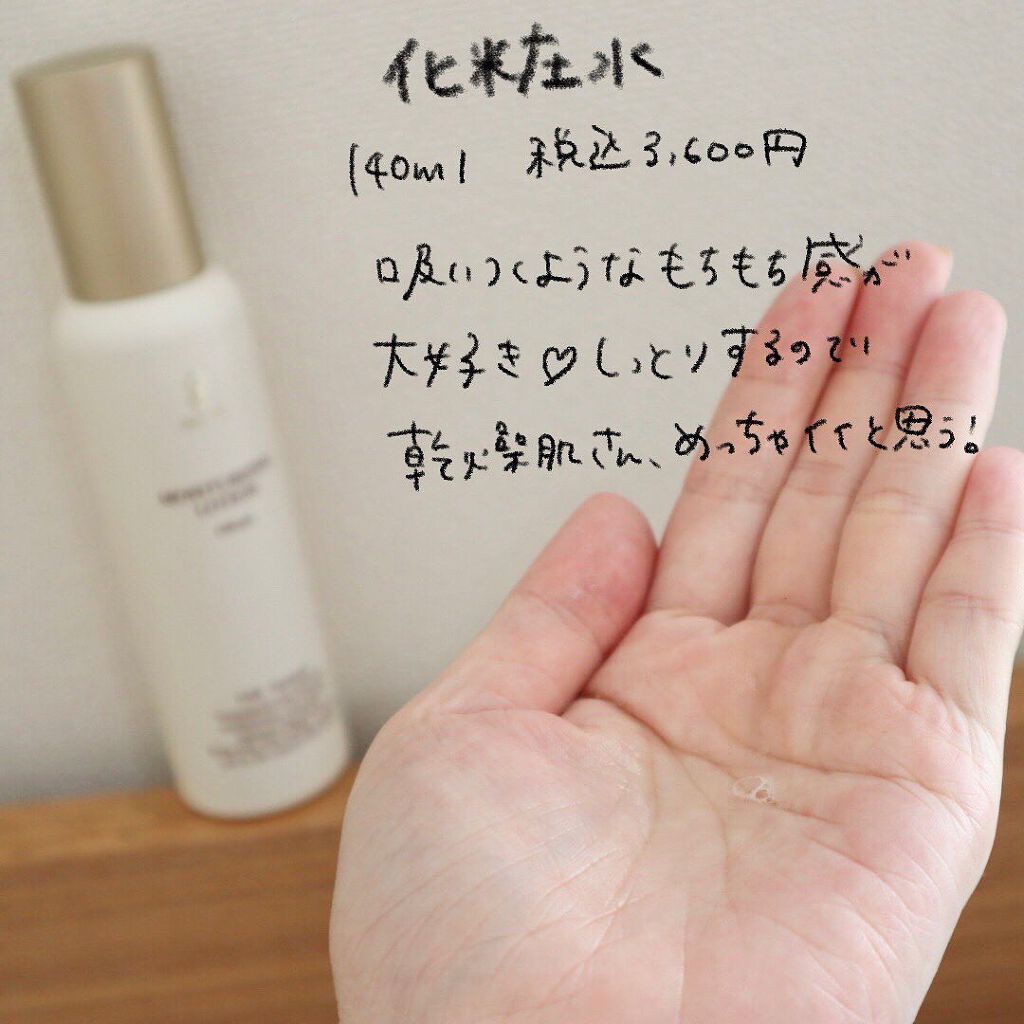 化粧水
140ml 税込3,600円
吸いつくようなもちもち感が
大好き♡しっとりするので
乾燥肌さん、めっちゃイイと思う!
LOTION